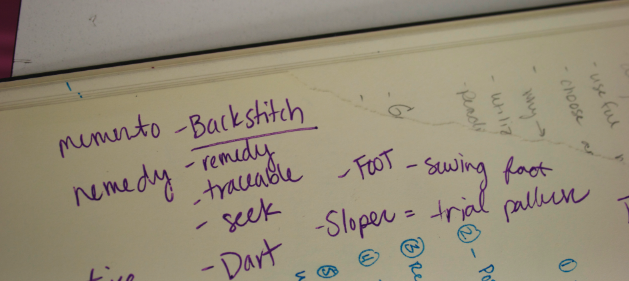 memento - Backstitch
remedy - remedy
- traceable
- seek
- Dart
- FOOT - sewing foot
- Sloper = trial pattern
- useful
- choose
- why →
- utiliz
- Readi
6
① 
② - Po
③ Re
④
⑤